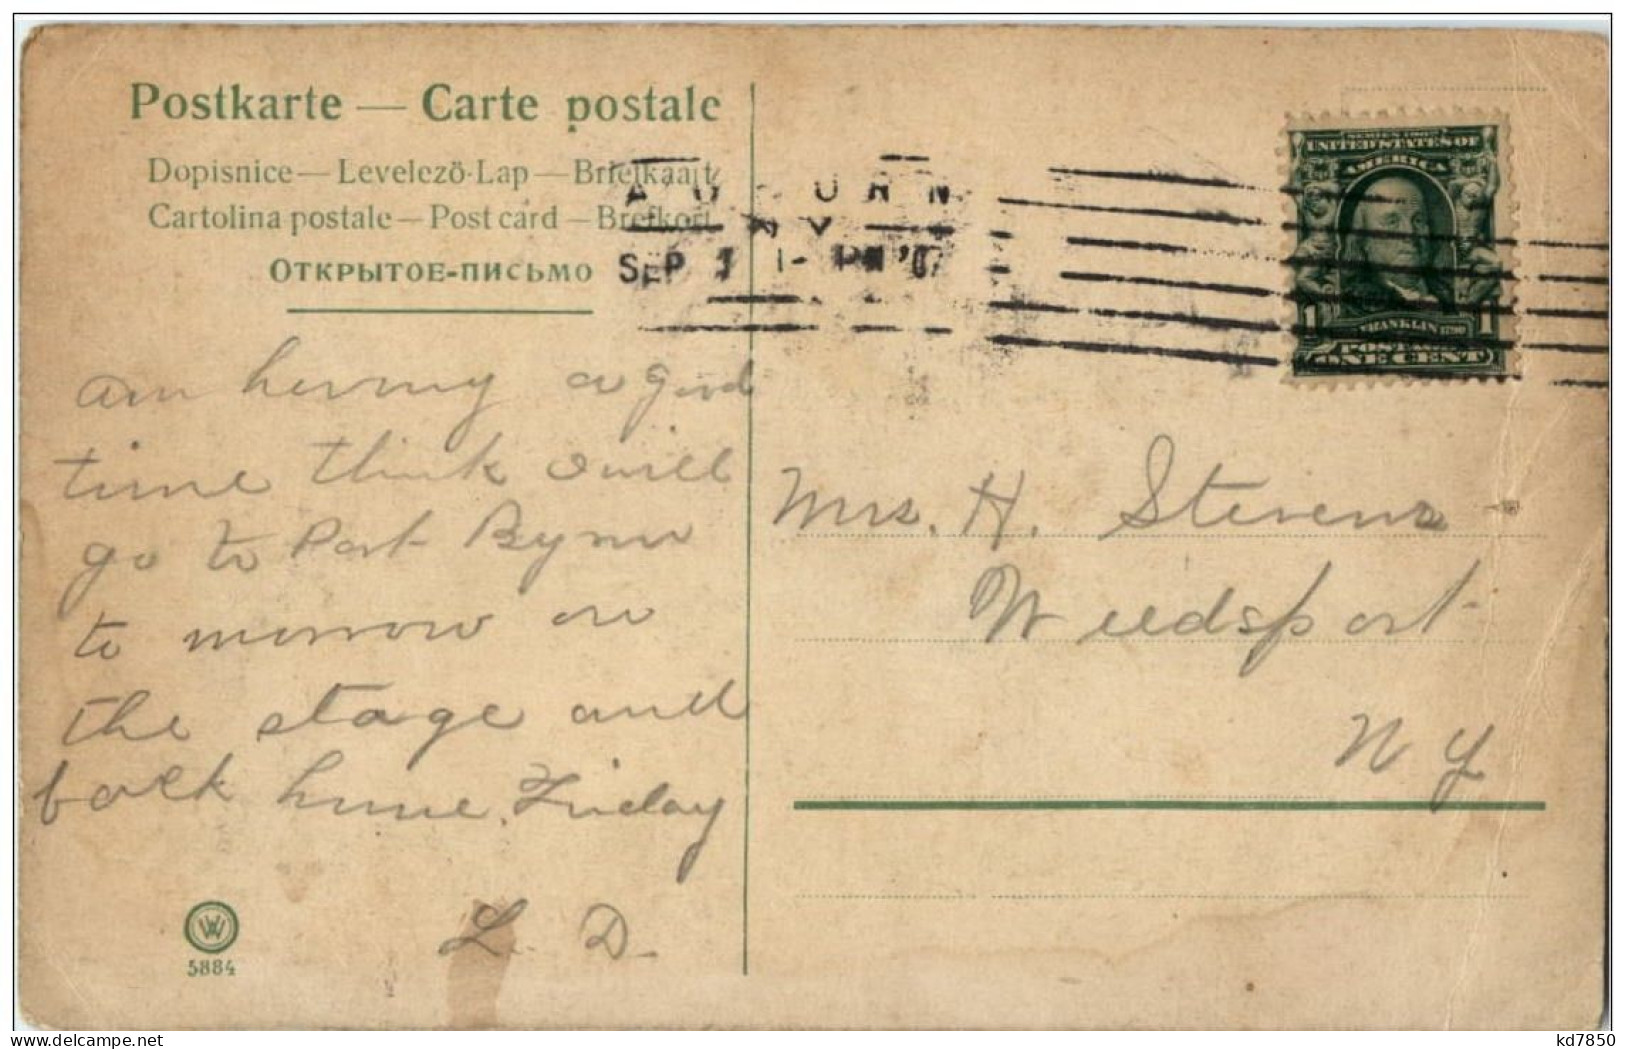 Postkarte — Carte postale
Dopisnice — Levelező-Lap — Briefkaart
Cartolina postale — Post card — Brefkort
ОТКРЫТОЕ-ПИСЬМО
AUBURN
N.Y.
SEP 1- PM '07
SERIES 1902
UNITED STATES OF
AMERICA
1 FRANKLIN 1790 1
POSTAGE
ONE CENT
am having a good
time think I will
go to Port Byron
to morrow on
the stage and
back home Friday
L. D.
Mrs. H. Stevens
Weedsport
N Y
W
5884
delcampe.net
kd7850